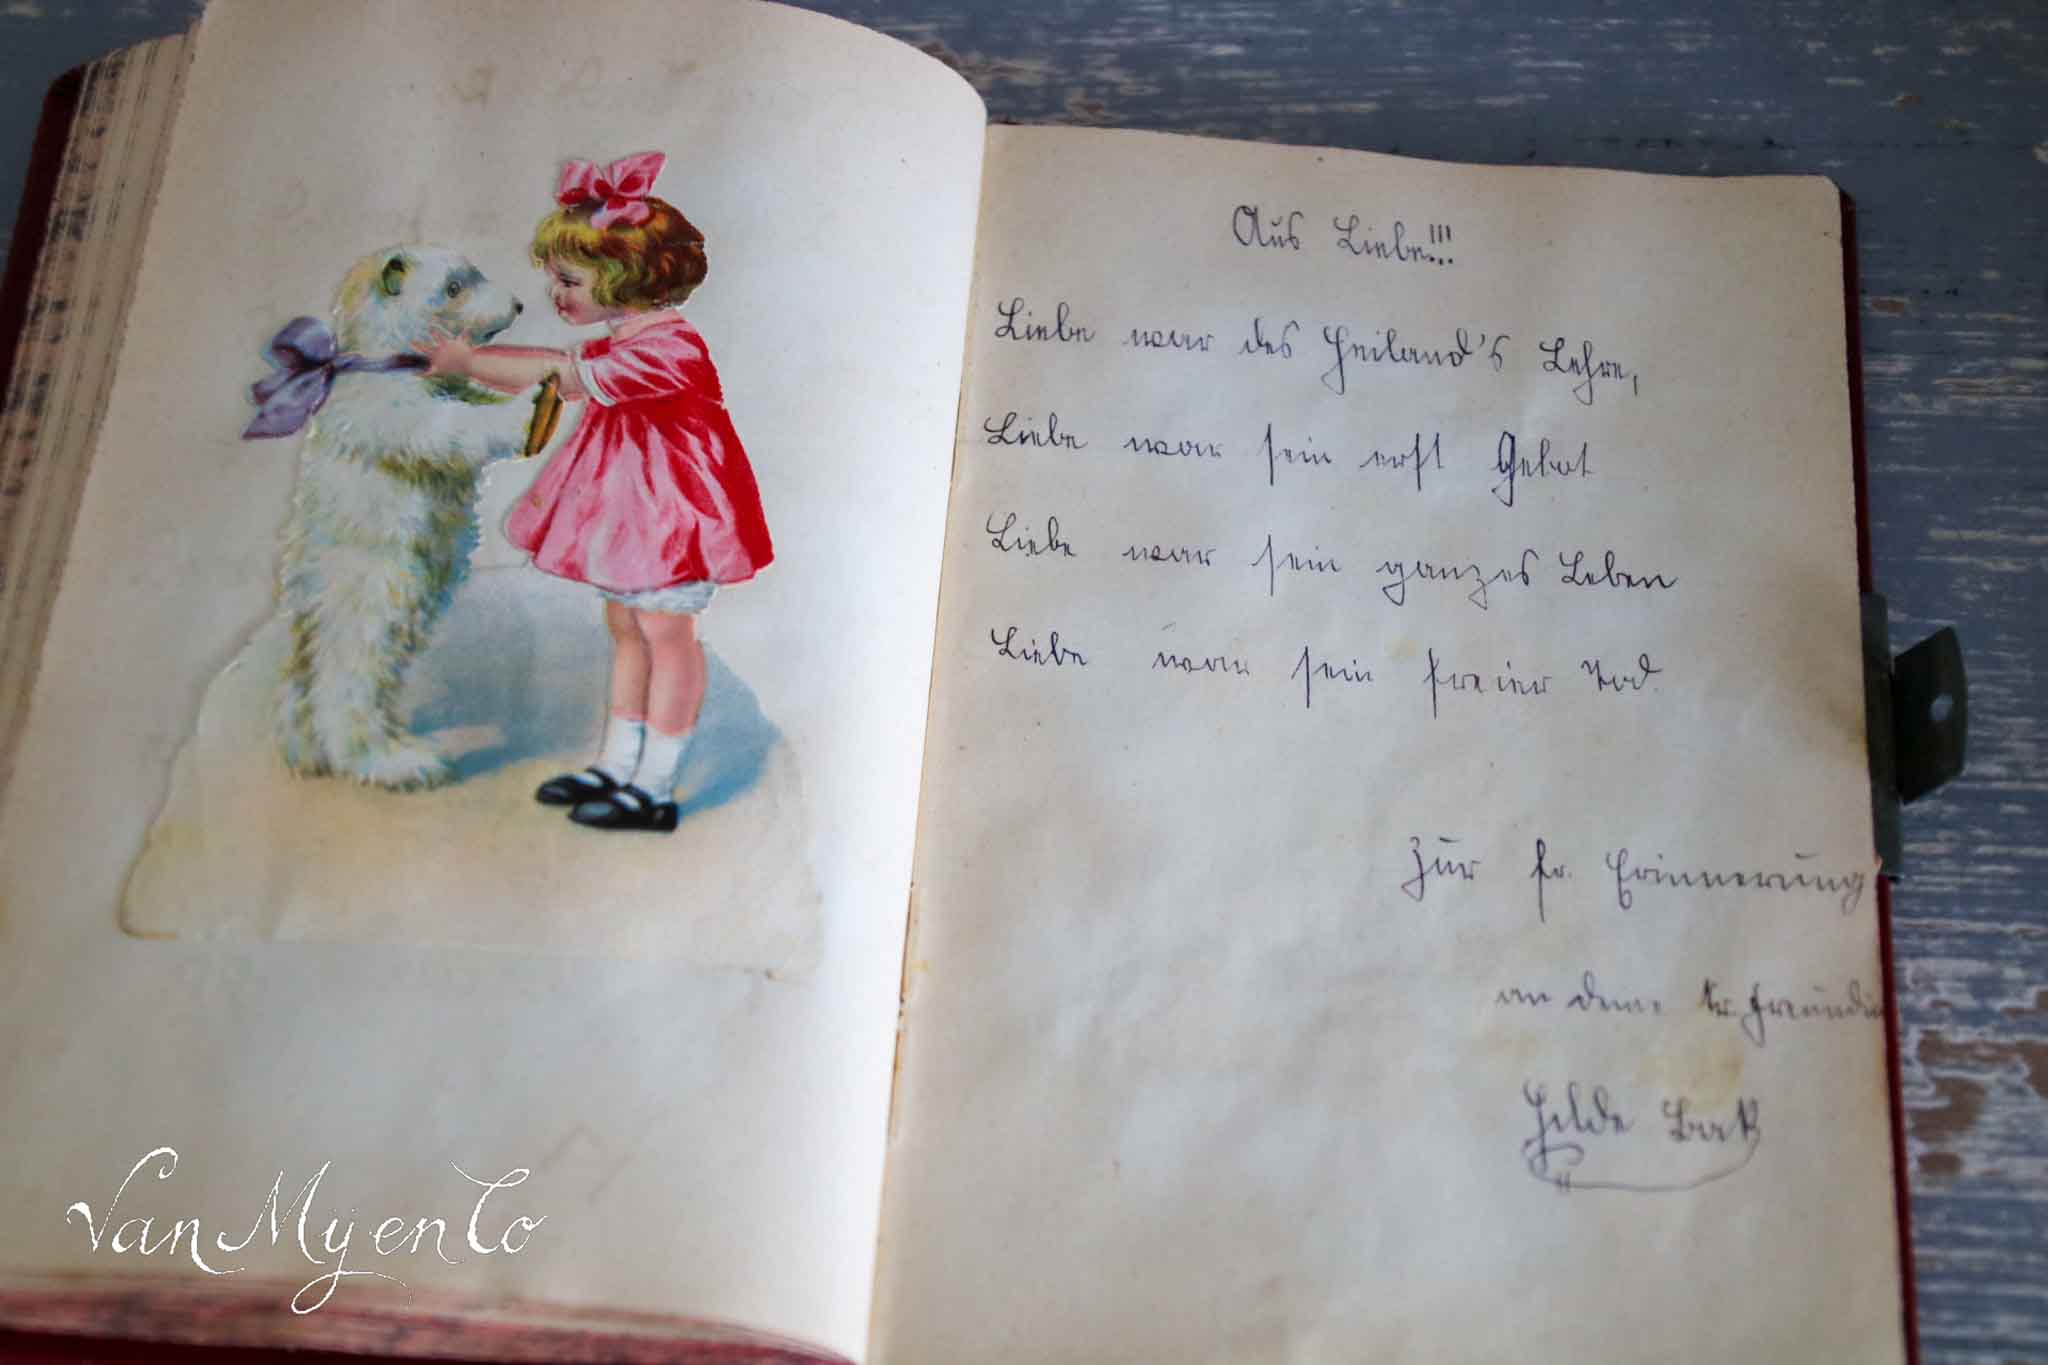 Aus Liebe!!!
Liebe war des Heiland's Lehre,
Liebe war sein erst Gebot
Liebe war sein ganzes Leben
Liebe war sein freier Tod.
Zur fr. Erinnerung
an deine tr. Freundin
Hilde
Van Mij en Co